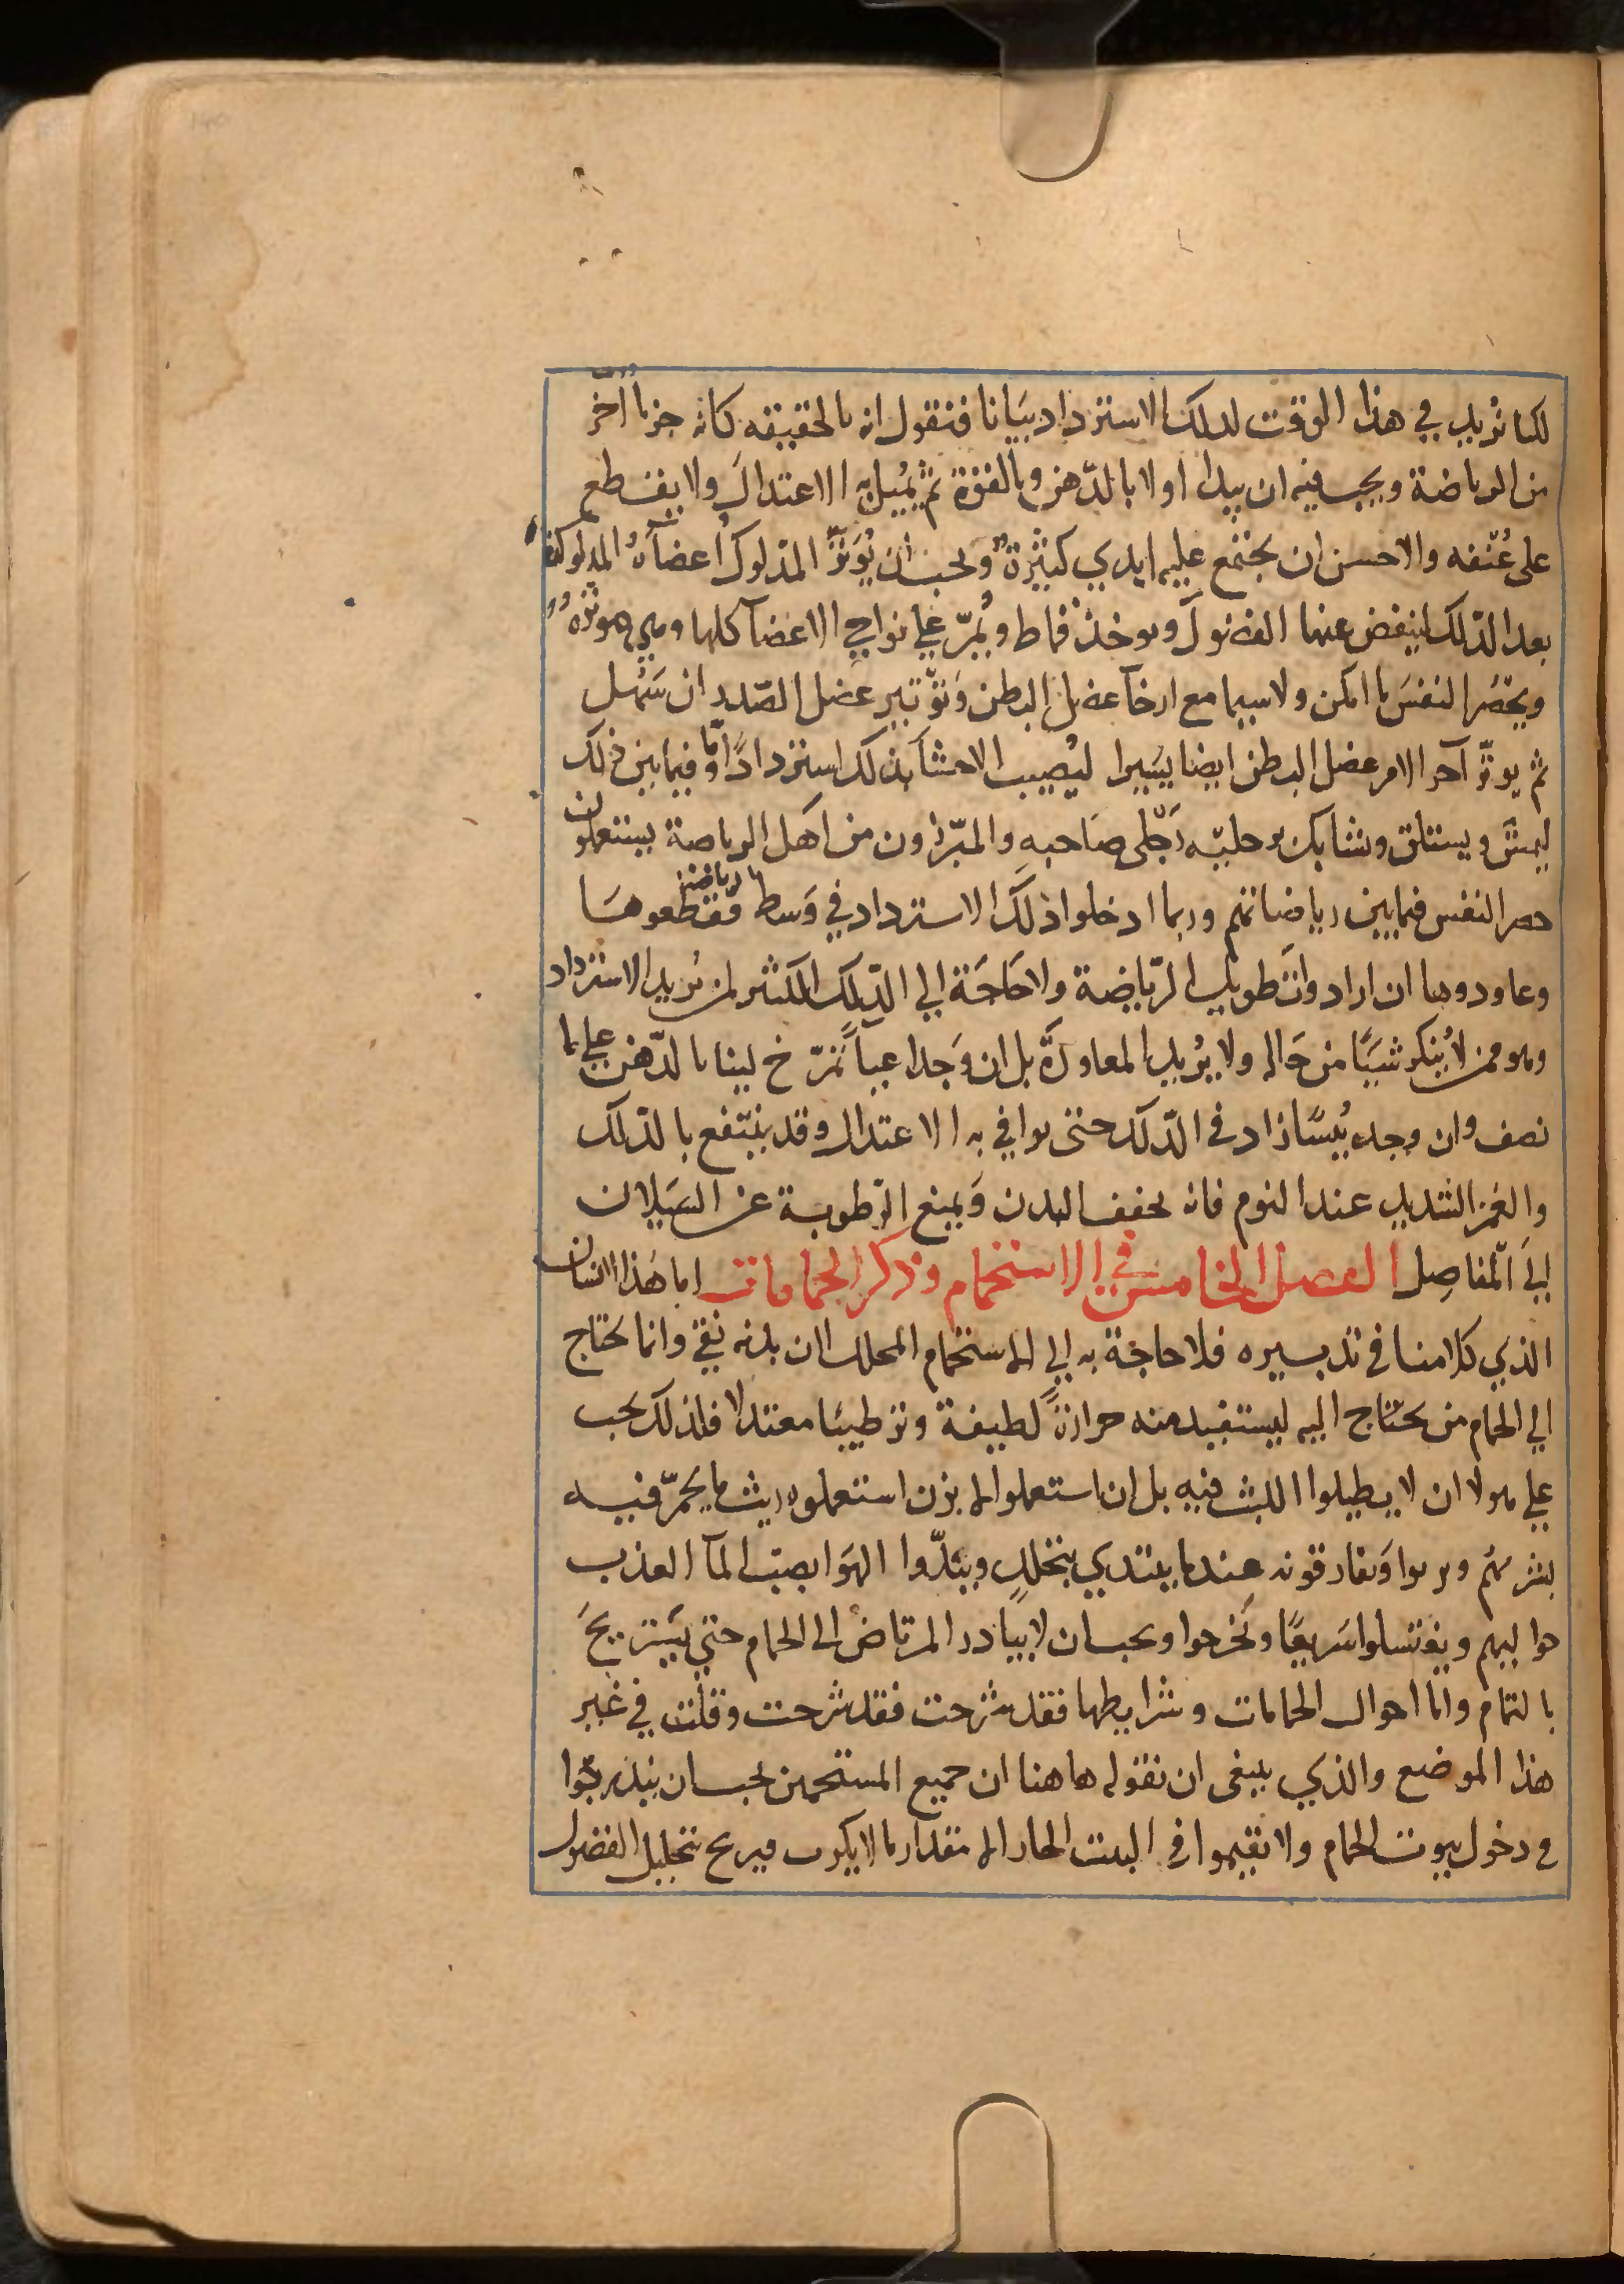 لكنا نزيد في هذا الوقت لدلك الاسترداد بيانا فنقول انه بالحقيقه كانه جزءا آخر
من الرياضة ويجب فيه ان يبدا اولا بالدّهن وبالقوة ثم يُميل به الاعتدال ولا يقطع
على عُنّفه والاحسن ان يجتمع عليه ايدي كثيرة ويجب ان يُوَتِّر المدلوك اعضآه المدلوكة
بعد الدّلك لينفض عنها الفضول ويوخذ قماط ويُمرّ علي نواحي الاعضآ كلها وهي موتره
ويحصَر النفسَ ما امكن ولاسيما مع ارخآ عضل البطن وَتوّتير عضل الصّدر ان سَهُل
ثم يوتّر آخر الامر عضل البطن ايضا يسَيرا ليُصيب الاحشآ بذلك استردادًا مّا وفيما بين ذلك
ليمشَ ويستلق وشابك برجليّه رَجّلى صَاحبهِ والمبّرزون من اهَل الرياضة يستعملون
حصر النفس فيما بين رياضاتهم وربما ادخلوا ذلَك الاسترداد في وَسط رياضة فقطعوهَا
وعاودوها ان ارادوا تَطويل الرّياضة ولا حَاجَة الي الدّلك الكثير لمن يُريد الاسترداد
وهو ممن لا يُنكر شيَيًا من حَاله ولا يُريد المعاودَة بل ان وَجد اعيآً تمرّخ لينا بالدّهن علي ما
نصف وان وجد يُبسًا زاد في الدّلك حتى يوافي به الاعتدال وقد ينتفع بالدّلك
والغَمز الشديد عند النوم فانه يجفف البدن وَيمنع الرّطوبة عن السَيلان
اليَ المَفاصِل الفصل الخامس في الاستحمام وذكر الحمامات اما هَذا الانسان
الذي كلامنا في تدبيره فلا حاجة به الي الاستحمام المحلل لان بدنه نَقيّ وانما يحتاج
الي الحمام من يحتاج اليه ليستفيد منه حرارةً لطيفة وترطيبًا معتدلا فلذلك يجب
علي هولا ان لا يطيلوا اللبث فيه بل ان استعملوا الابزن استعملوه ريث ما يحمَرّ فيه
بشرتهم ويربوا وَيفارقونه عندما يبتدي يتحلل ويندّوا الهَوا بصبّ المآ العذب
حواليهم ويغتسلوا سَريعًا ويَخرجوا ويجب ان لا يبادر المرتاض الي الحمام حتي يسَتريحَ
بالتمام واما احوال الحمامات وشرايطها فقد شرحت فقد شرحت وقلت في غير
هذا الموضع والذي ينبغى ان نقوله هاهنا ان جميع المستحمين يجب ان يتدرجّوا
في دخول بيوت الحمام ولا يقيموا في البيت الحار الا مقدار ما لا يكرب فيربح بتحليل الفضول